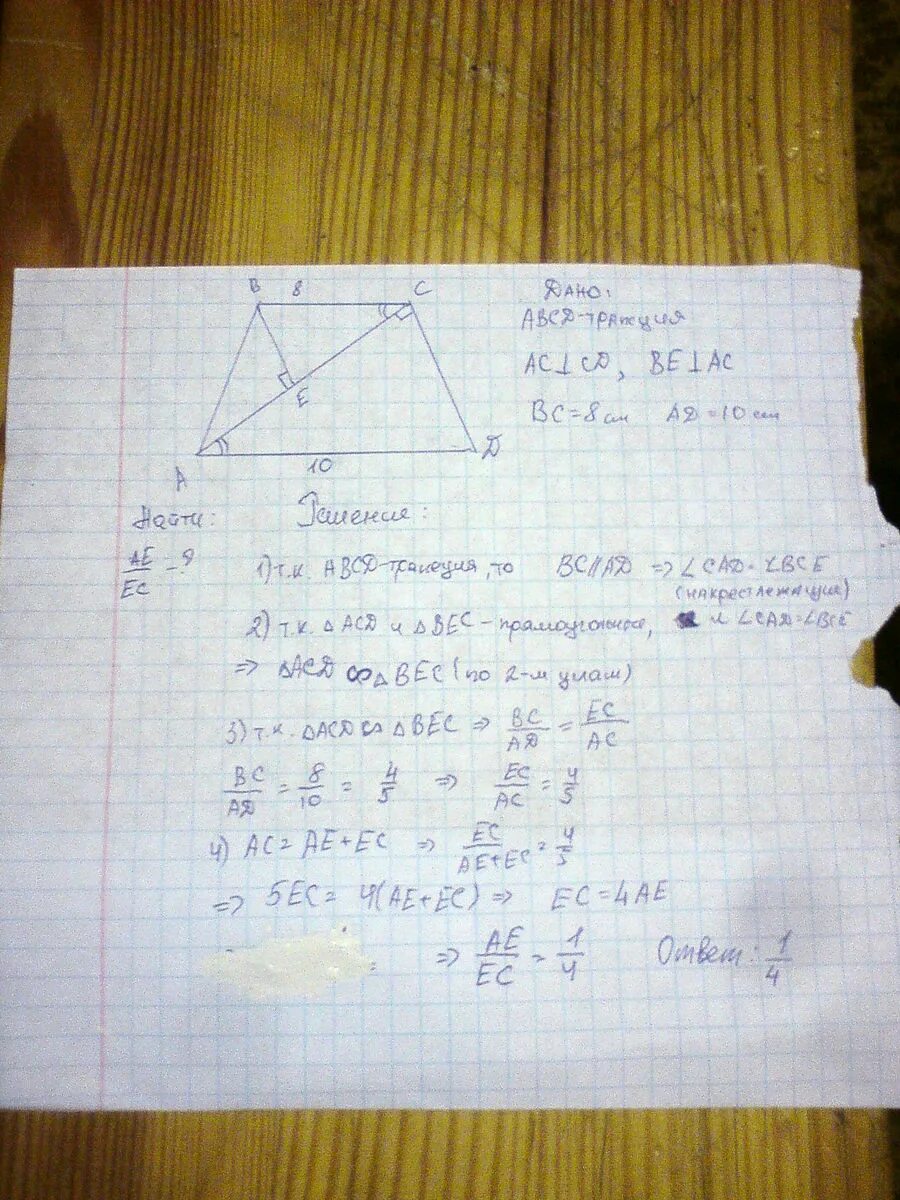 B 8 C
E
A 10 D
Дано:
ABCD-трапеция
AC⊥CD, BE⊥AC
BC=8см AD=10см
Найти: Решение:
AE/EC -?
1) т.к. ABCD-трапеция, то BC//AD => ∠CAD=∠BCE
(накрестлежащие)
2) т.к. △ACD и △BEC-прямоугольные, и ∠CAD=∠BCE
=> △ACD ∞ △BEC (по 2-м углам)
3) т.к. △ACD ∞ △BEC => BC/AD = EC/AC
BC/AD = 8/10 = 4/5 => EC/AC = 4/5
4) AC = AE+EC => EC/AE+EC = 4/5
=> 5EC = 4(AE+EC) => EC=4AE
=> AE/EC = 1/4 Ответ: 1/4